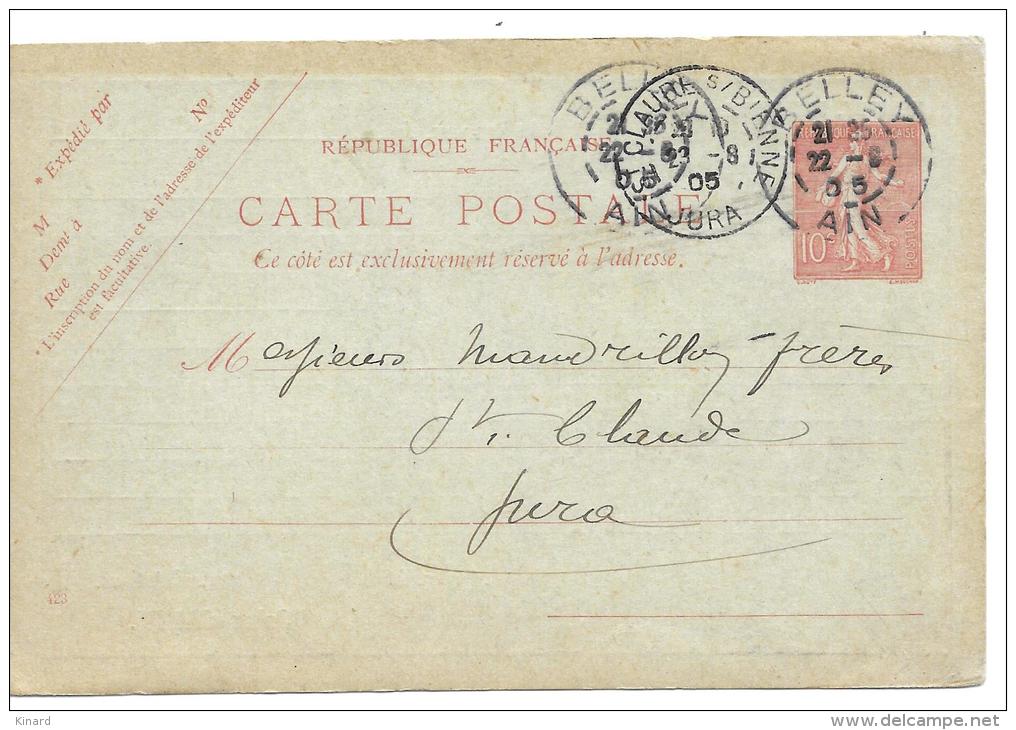 * Expédié par
M
Demt à
Rue
No
* L'inscription du nom et de l'adresse de l'expéditeur
est facultative.
RÉPUBLIQUE FRANÇAISE
CARTE POSTALE
Ce côté est exclusivement réservé à l'adresse.
BELLEY
22 -8
05
AIN
ST CLAUDE S/BIENNE
23 -8
05
JURA
BELLEY
21
22 -8
05
AIN
REPUBLIQUE FRANÇAISE
10c
POSTES
Messieurs Mandrillon frères
St. Claude
Jura
423
Kinard
delcampe.net